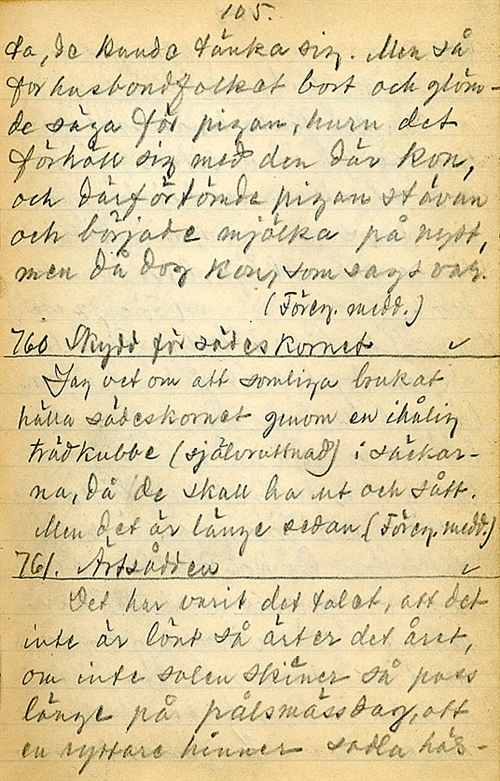 105.
ta, de kunde tänka sig. Men så
for husbondfolket bort och glöm-
de säga för pigan, huru det
förhöll sig med den där kon,
och därför tömde pigan stävan
och började mjölka på nytt,
men då dog kon, som sagt var.
(Föreg. medd.)
760 Skydd för sädeskornet ✓
Jag vet om att somliga brukat
hälla sädeskornet genom en ihålig
trädkubbe (självruttnad) i säckar-
na, då de skall ha ut och sått.
Men det är länge sedan (Föreg. medd.)
761. Ärtsådden ✓
Det har varit det talet, att det
inte är lönt så ärter det året,
om inte solen skiner så pass
länge på pålsmässdag, att
en ryttare hinner sadla häs-